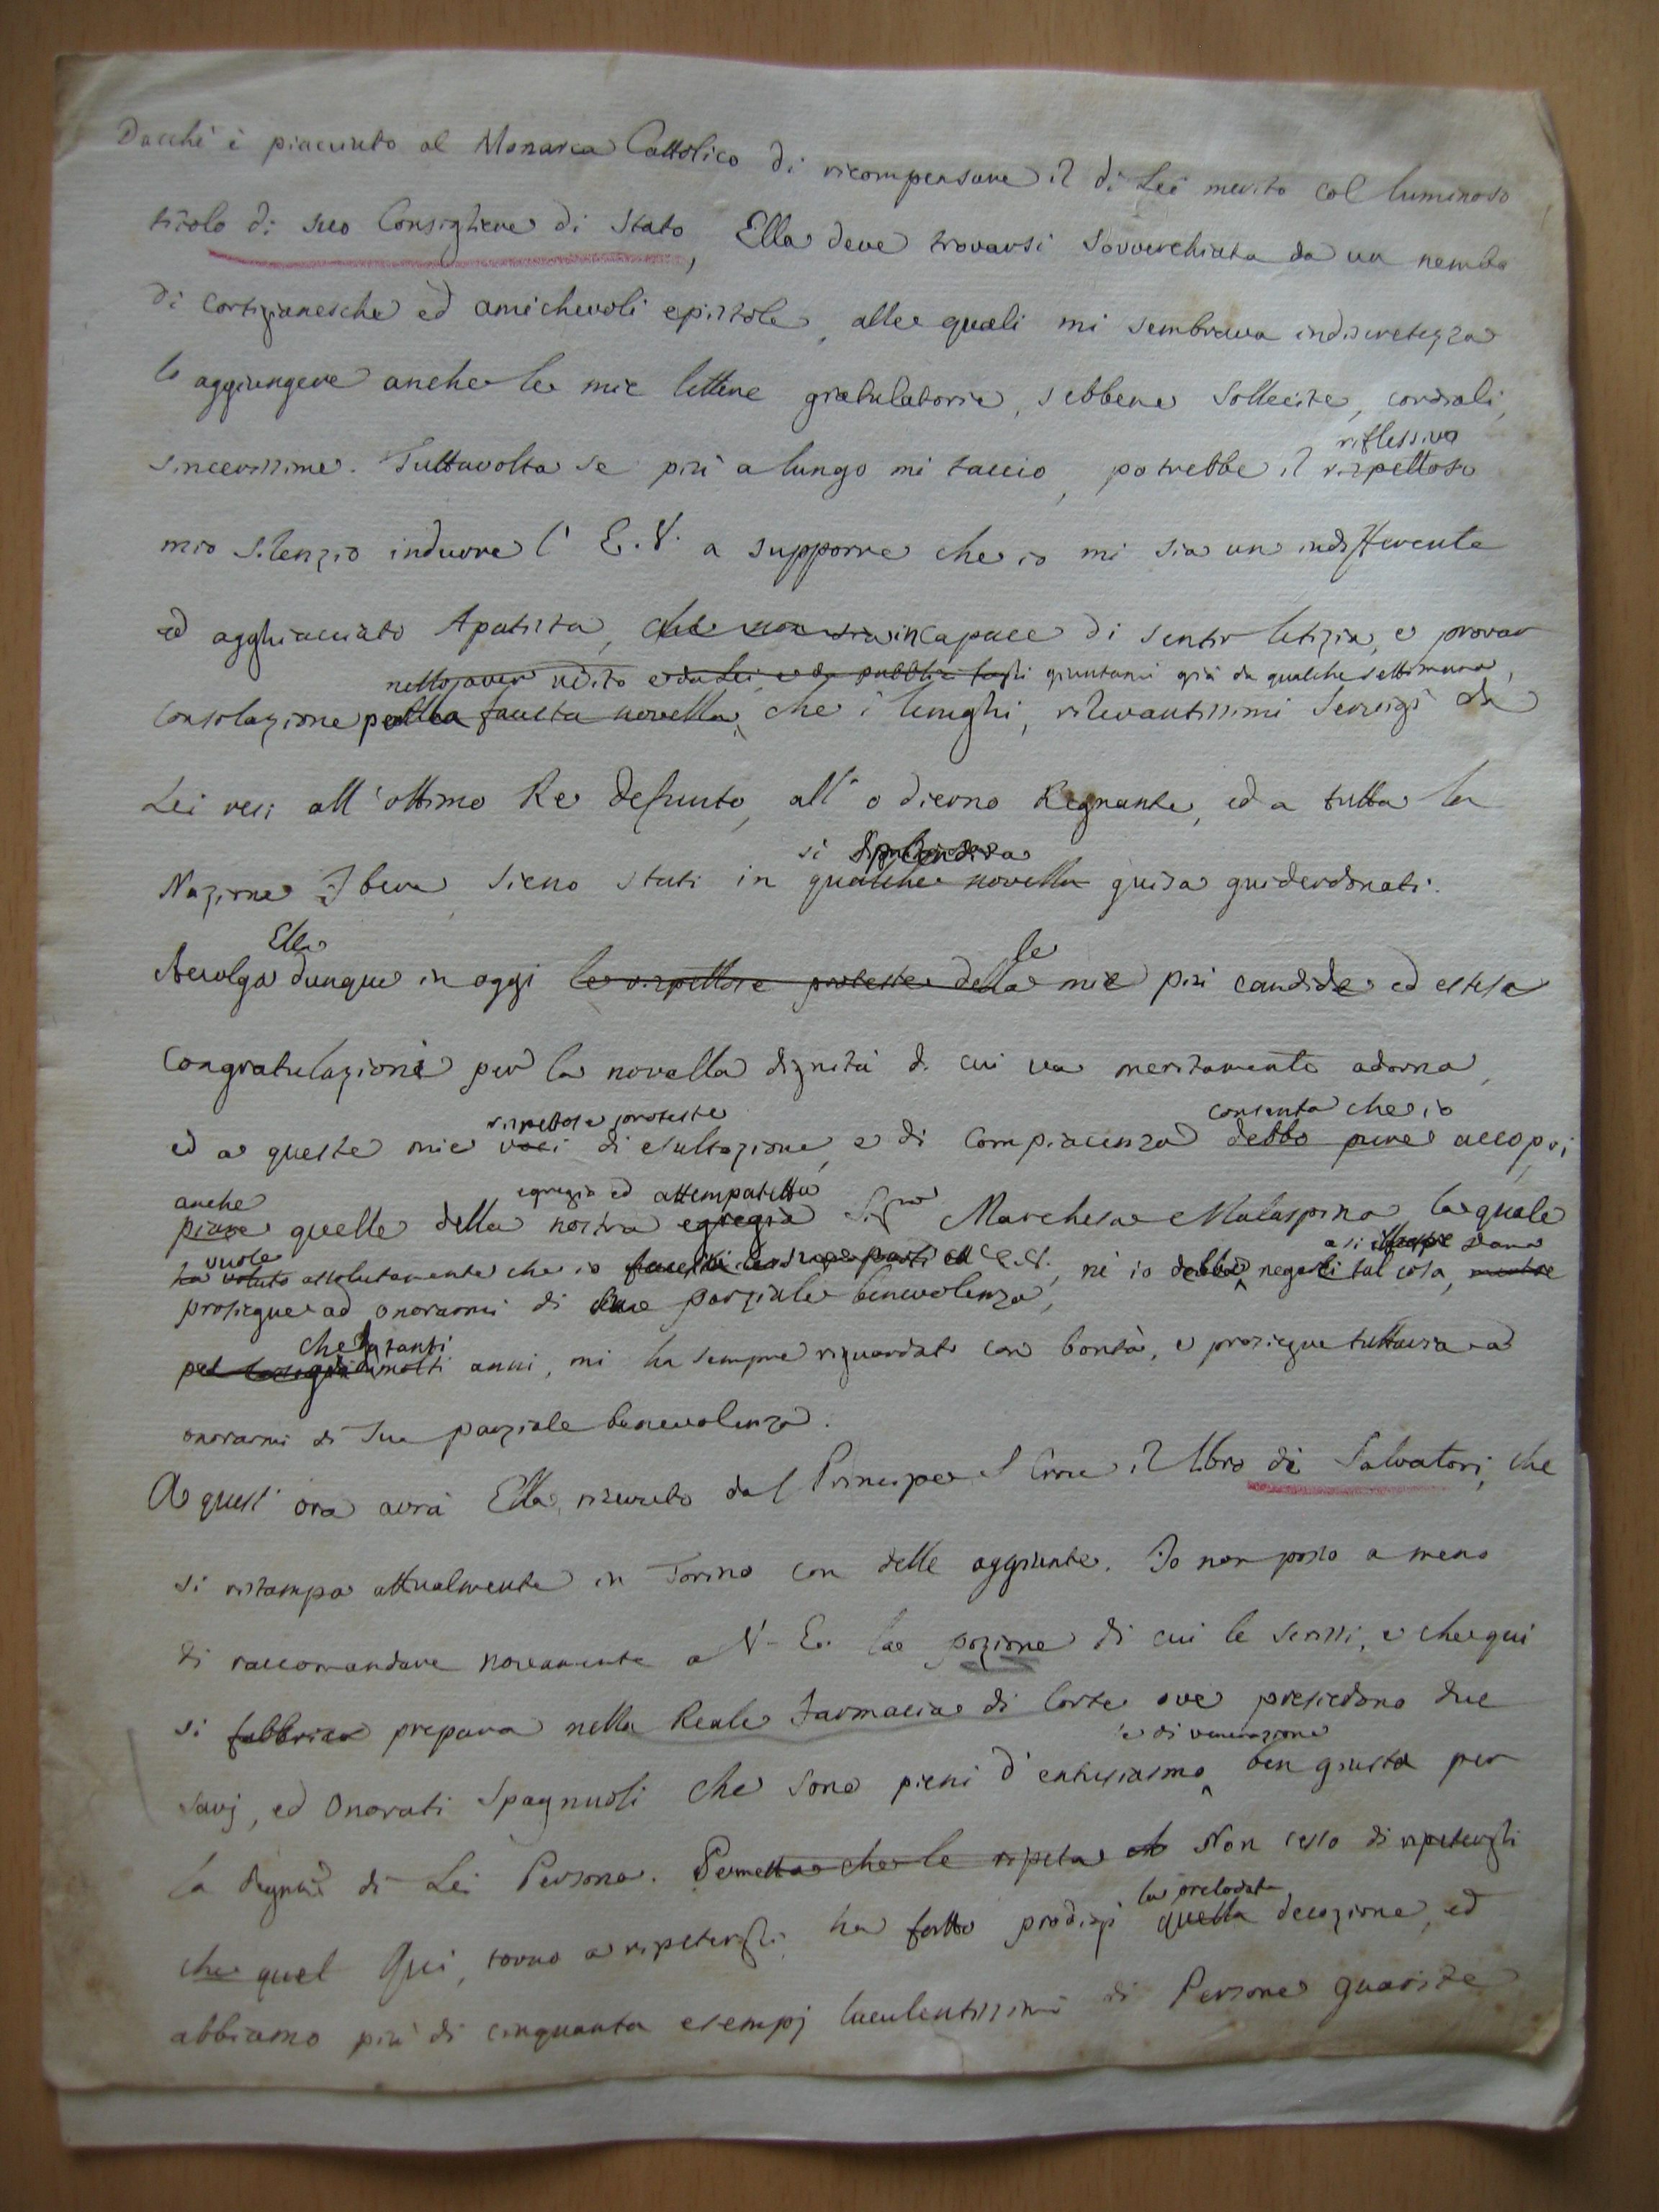 Dacchè è piacciuto al Monarca Cattolico di ricompensare il di Lei merito col luminoso
titolo di suo Consigliere di Stato, Ella deve trovarsi soverchiata da un nembo
di cortigianesche ed amichevoli epistole, alle quali mi sembrava indiscretezza
lo aggiungere anche le mie lettere gratulatorie, sebbene sollecite, cordiali,
riflessivo
sincerissime. Tuttavolta se più a lungo mi taccio, potrebbe il rispettoso
mio silenzio indurre l' E. V. a supporre che io mi sia un indifferente
ed agghiacciato Apatista, che non sia incapace di sentir letizia, e provar
nello aver udito e da Lei, e da pubblici fogli giuntami già da qualche settimana,
consolazione della fausta novella, che i lunghi, rilevantissimi servigi da
Lei resi all'ottimo Re defunto, all'odierno Regnante, ed a tutta la
si splendida
Nazione Ibera, sieno stati in qualche novella guisa guiderdonati.
Ella le
Accolga dunque in oggi le rispettose proteste della mie più candide ed estese
congratulazioni per la novella dignità di cui va meritamente adorna,
rispettose proteste consenta che io
ed a queste mie voci di esultazione, e di compiacenza debbo pure accoppj
anche egregia ed attempatetta
quelle della nostra egregia Sig.ra Marchesa Malaspina la quale
vuole
ha voluto assolutamente che io E. V., nè io debbo negarli tal cosa, mentre
prosiegue ad onorarmi di sua parziale benevolenza,
che da tanti
molti anni, mi ha sempre riguardato con bontà, e prosiegue tuttavia ad
onorarmi di Sua parziale benevolenza.
A quest' ora avrà Ella ricevuto dal Principe il libro di Salvatori, che
si ristampa attualmente in Torino con delle aggiunte. Io non posso a meno
di raccomandare novamente a V. E. la pozione di cui le scrissi, e che qui
si fabbrica prepara nella Reale Farmacia di Corte ove presiedono due
e di venerazione
savj, ed onorati Spagnuoli che sono pieni d'entusiasmo ben giusto per
la degna di Lei Persona. Permetta che le ripeta Non cesso di ripetergli
la prelodata
che quel Qui, torno a ripetergli, ha fatto prodigj quella decozione, ed
abbiamo più di cinquanta esempj luculentissimi di Persone guarite